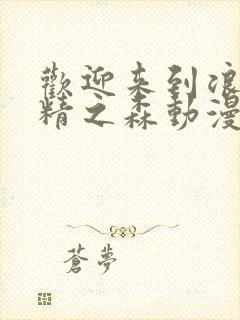 歡迎来到浪
精之森動漫
蒼夢